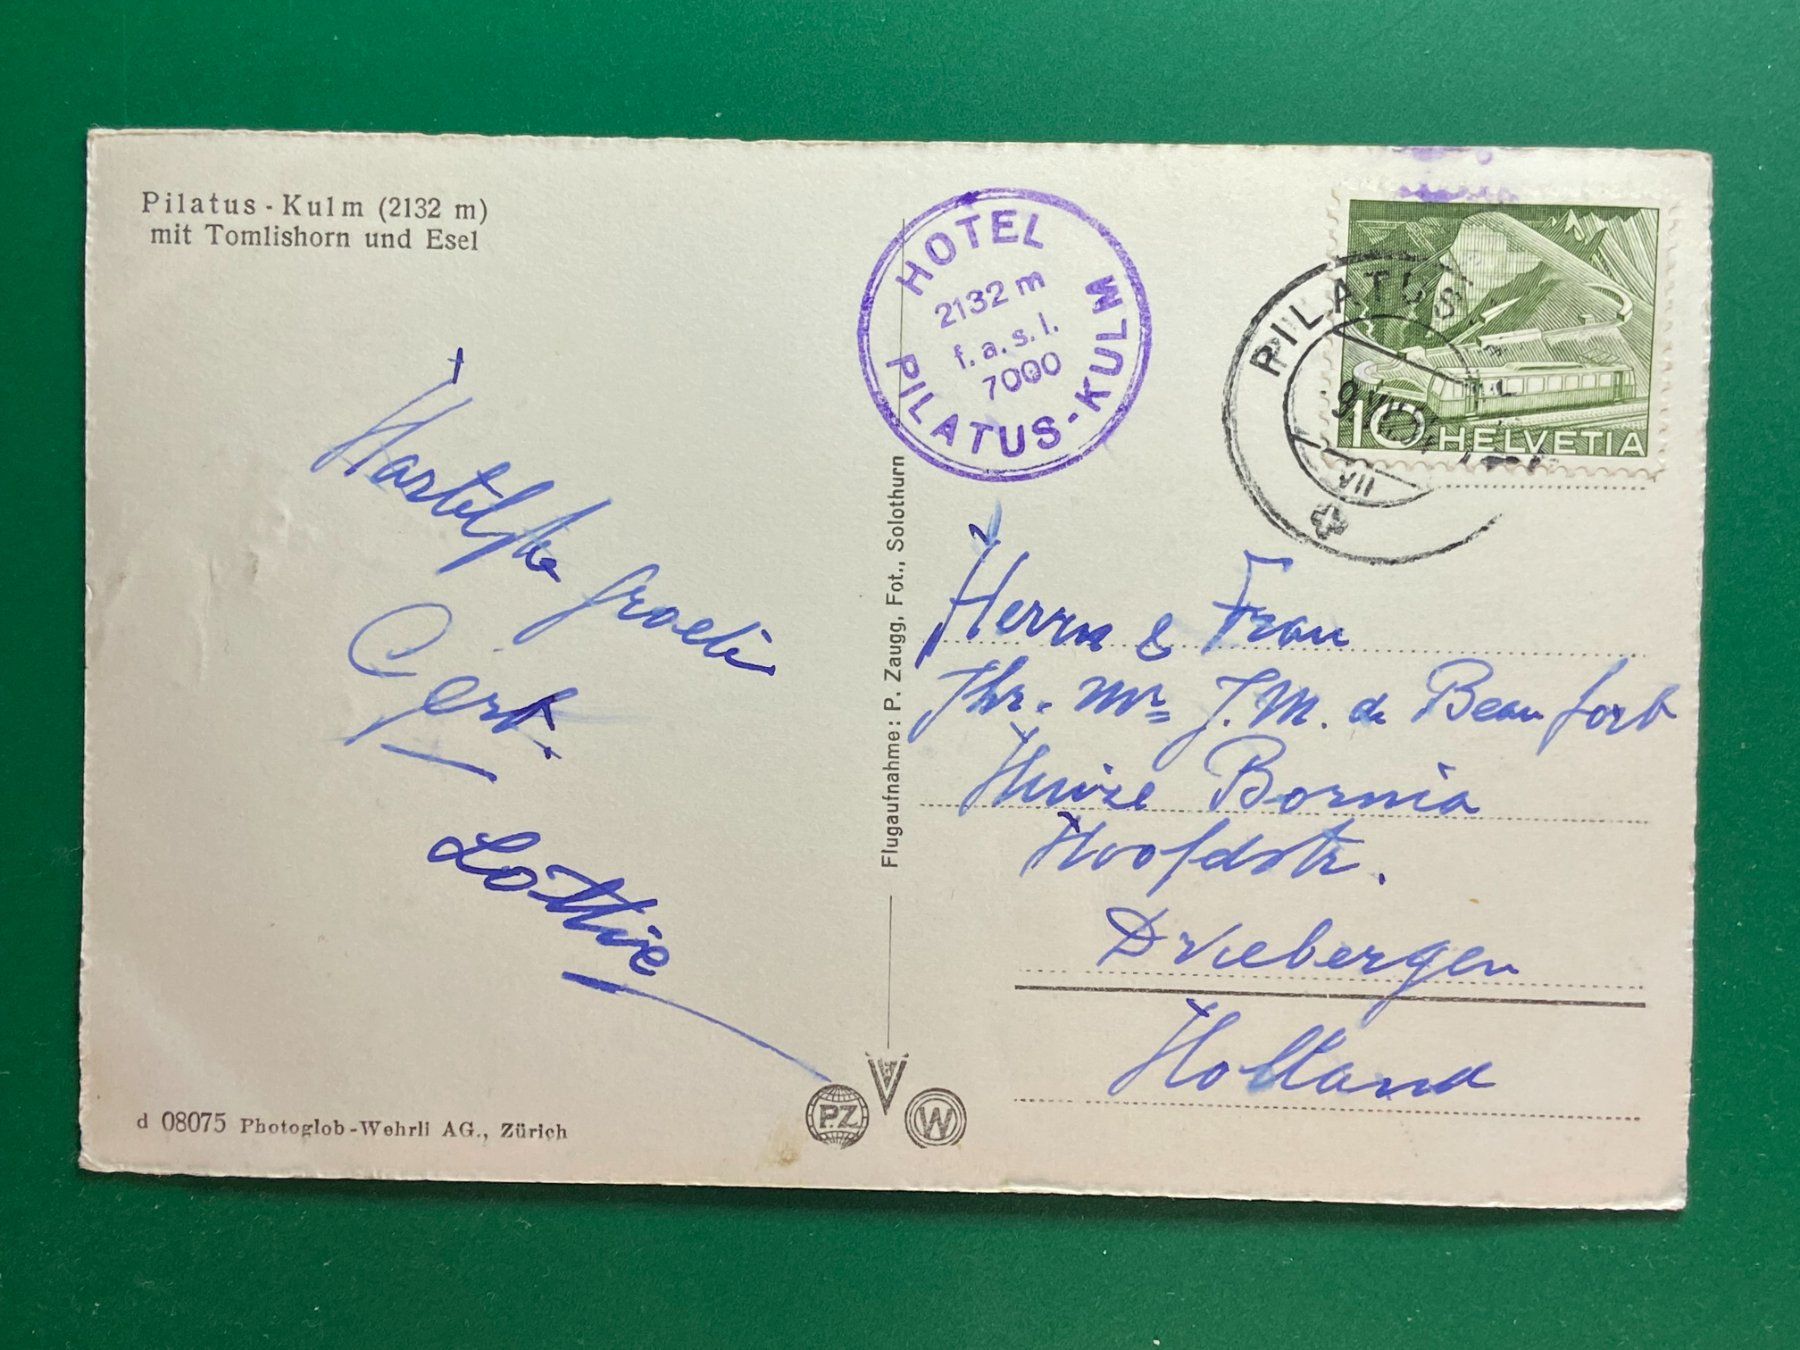 Pilatus - Kulm (2132 m)
mit Tomlishorn und Esel
Hartelijke groeten
Gert.
Lottie
d 08075 Photoglob-Wehrli AG., Zürich
Flugaufnahme: P. Zaugg, Fot., Solothurn
PZ
W
HOTEL
2132 m
f. a. s. l.
7000
PILATUS-KULM
PILATUS
10 HELVETIA
Herrn & Frau
Jhr. Mr J. M. de Beaufort
Huize Bornia
Hoofdstr.
Driebergen
Holland